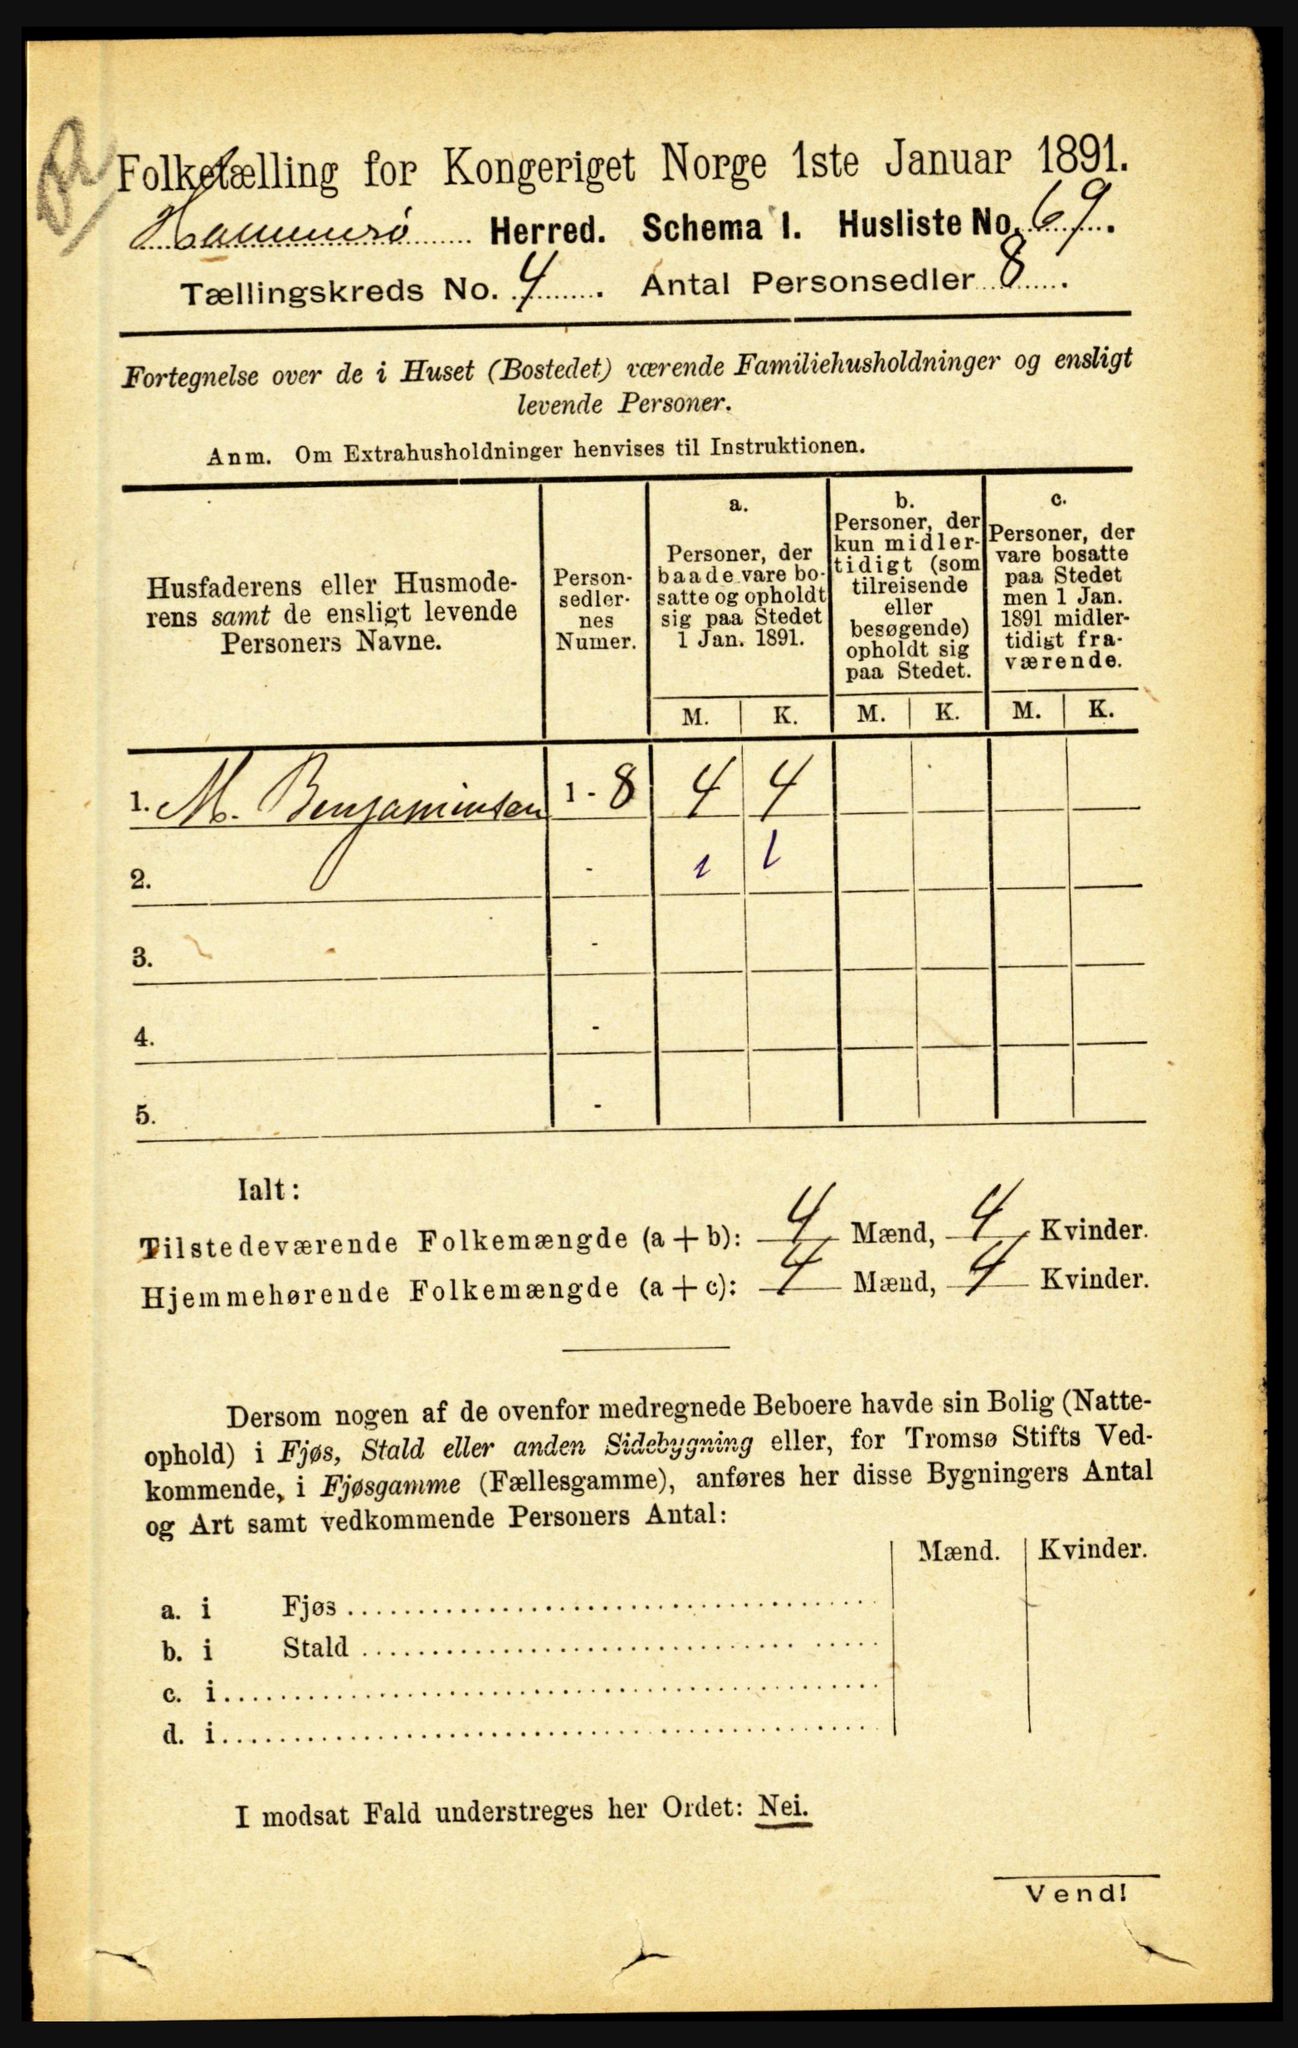 Folketælling for Kongeriget Norge 1ste Januar 1891.
Hammerø Herred. Schema 1. Husliste No. 69.
Tællingskreds No. 4. Antal Personsedler 8.
Fortegnelse over de i Huset (Bostedet) værende Familiehusholdninger og ensligt
levende Personer.
Anm. Om Extrahusholdninger henvises til Instruktionen.
Husfaderens eller Husmode-
rens samt de ensligt levende
Personers Navne.
Person-
sedler-
nes
Numer.
a.
Personer, der
baade vare bo-
satte og opholdt
sig paa Stedet
1 Jan. 1891.
b.
Personer, der
kun midler-
tidigt (som
tilreisende
eller
besøgende)
opholdt sig
paa Stedet.
c.
Personer, der
vare bosatte
paa Stedet
men 1 Jan.
1891 midler-
tidigt fra-
værende.
M. K. M. K. M. K.
1. M. Benjaminsen 1 - 8 4 4
2. - 1 1
3. -
4. -
5. -
Ialt:
Tilstedeværende Folkemængde (a + b): 4 Mænd, 4 Kvinder.
Hjemmehørende Folkemængde (a + c): 4 Mænd, 4 Kvinder.
Dersom nogen af de ovenfor medregnede Beboere havde sin Bolig (Natte-
ophold) i Fjøs, Stald eller anden Sidebygning eller, for Tromsø Stifts Ved-
kommende, i Fjøsgamme (Fællesgamme), anføres her disse Bygningers Antal
og Art samt vedkommende Personers Antal:
Mænd. Kvinder.
a. i Fjøs
b. i Stald
c. i
d. i
I modsat Fald understreges her Ordet: Nei.
Vend!